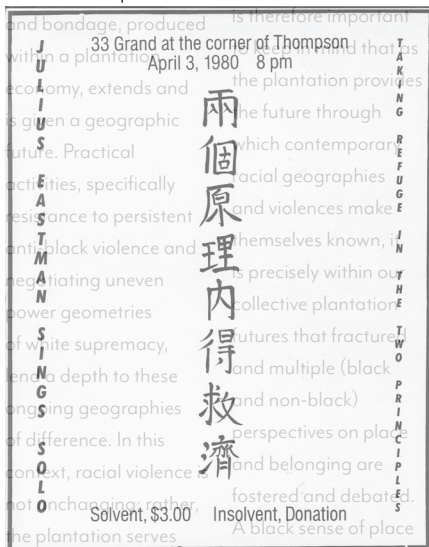 33 Grand at the corner of Thompson
April 3, 1980 8 pm
JULIUS EASTMAN SINGS SOLO
兩個原理内得救濟
TAKING REFUGE IN THE TWO PRINCIPLES
Solvent, $3.00 Insolvent, Donation
and bondage, produced
within a plantation
economy, extends and
is given a geographic
future. Practical
activities, specifically
resistance to persistent
anti-black violence and
negotiating uneven
power geometries
of white supremacy,
lend a depth to these
ongoing geographies
of difference. In this
context, racial violence is
not unchanging; rather,
the plantation serves
is therefore important
to keep in mind that as
the plantation provides
the future through
which contemporary
racial geographies
and violences make
themselves known, it
is precisely within our
collective plantation
futures that fractured
and multiple (black
and non-black)
perspectives on place
and belonging are
fostered and debated.
A black sense of place